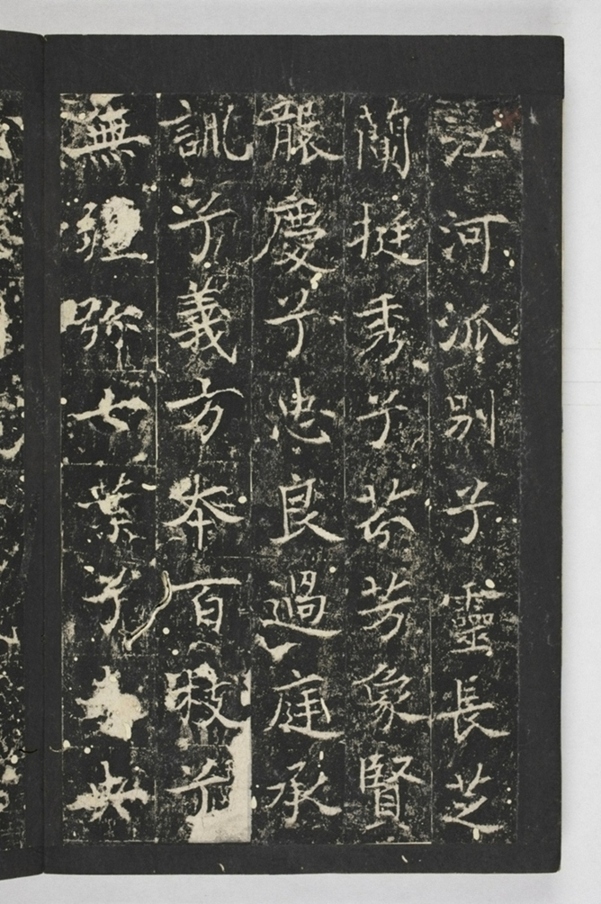 江河派別兮靈長芝
蘭挺秀兮芬芳象賢
襲慶兮忠良過庭承
訓兮義方夲百枝兮
無疆弥七葉兮未央